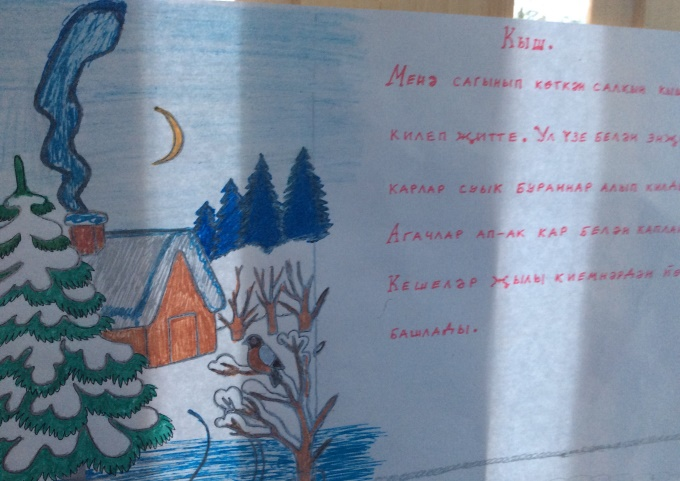 Кыш.
Менә сагынып көткән салкын
килеп җитте. Ул үзе белән
карлар суык бураннар алып
Агачлар ап-ак кар белән
Кешеләр җылы киемнәрдән
башлады.